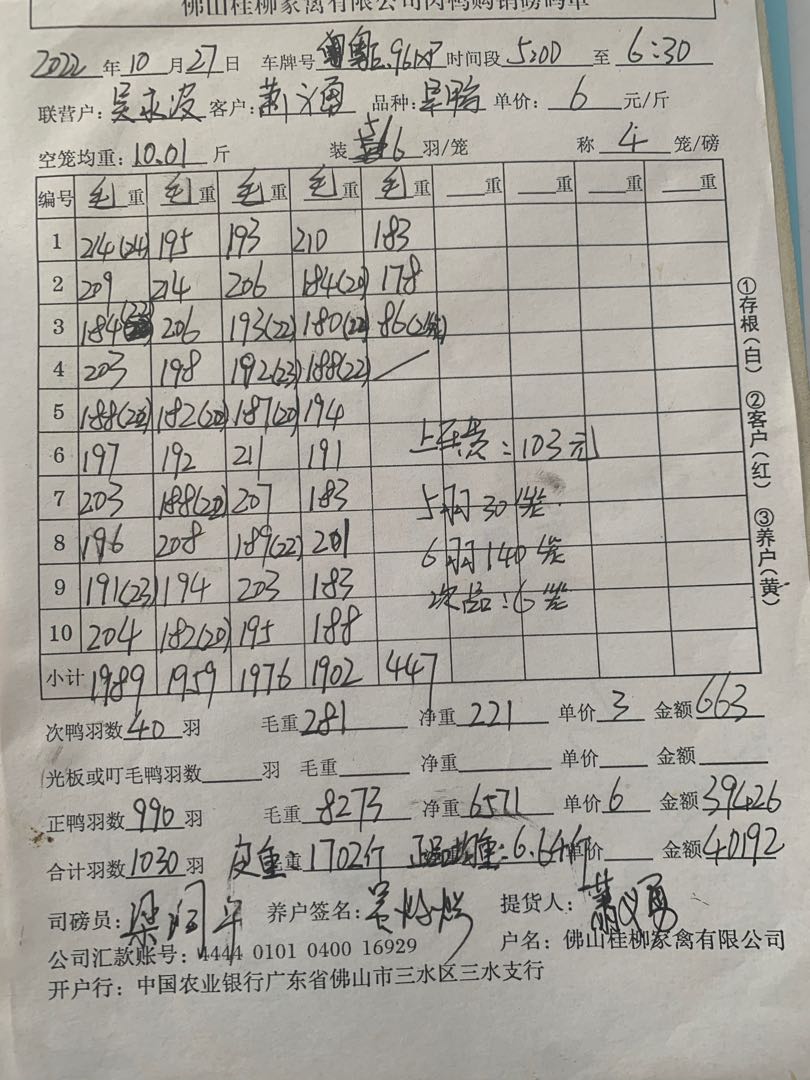 佛山桂柳家禽有限公司肉鸭购销磅码单
2022年10月27日 车牌号 时间段5:00至6:30
联营户:吴永波 客户:萧义勇 品种: 单价:6元/斤
空笼均重:10.01斤 装5/6羽/笼 称4笼/磅
编号 毛重 毛重 毛重 毛重 毛重 重 重 重 重
1 214(24) 195 193 210 183
2 209 214 206 184(20) 178
3 184(23) 206 193(22) 180(22) 86(2笼)
4 203 198 192(23) 188(22)
5 188(20) 182(20) 187(20) 194
6 197 192 211 191 上车费:103元
7 203 188(20) 207 183 5羽30笼
8 196 208 189(22) 201 6羽140笼
9 191(23) 194 203 183 次品:6笼
10 204 182(20) 195 188
小计 1989 1959 1976 1902 447
①存根(白) ②客户(红) ③养户(黄)
次鸭羽数40羽 毛重281 净重221 单价3 金额663
光板或叮毛鸭羽数 羽 毛重 净重 单价 金额
正鸭羽数990羽 毛重8273 净重6571 单价6 金额39426
合计羽数1030羽 皮重:重1702斤 正品均重:6.64斤 单价 金额40192
司磅员: 养户签名: 提货人:萧义勇
公司汇款账号:4444 0101 0400 16929 户名:佛山桂柳家禽有限公司
开户行:中国农业银行广东省佛山市三水区三水支行